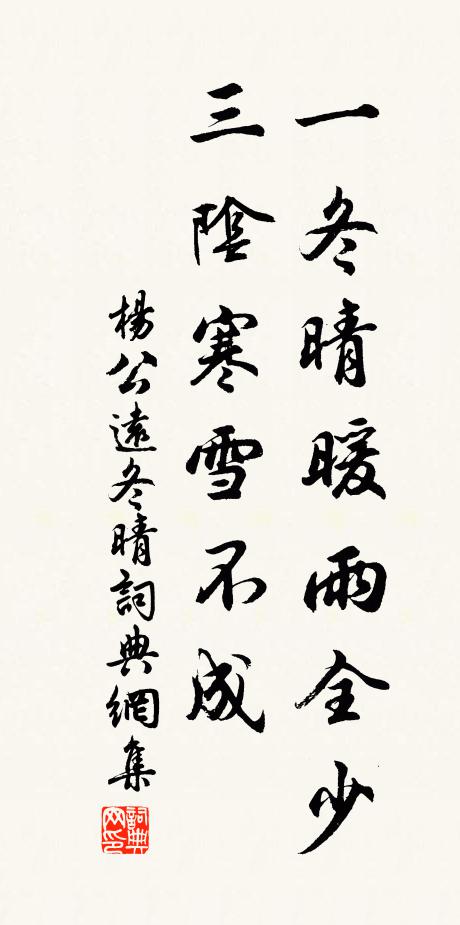 一冬晴暖雨全少
三陰寒雪不成
楊公遠冬晴詞典網集
詞典网印